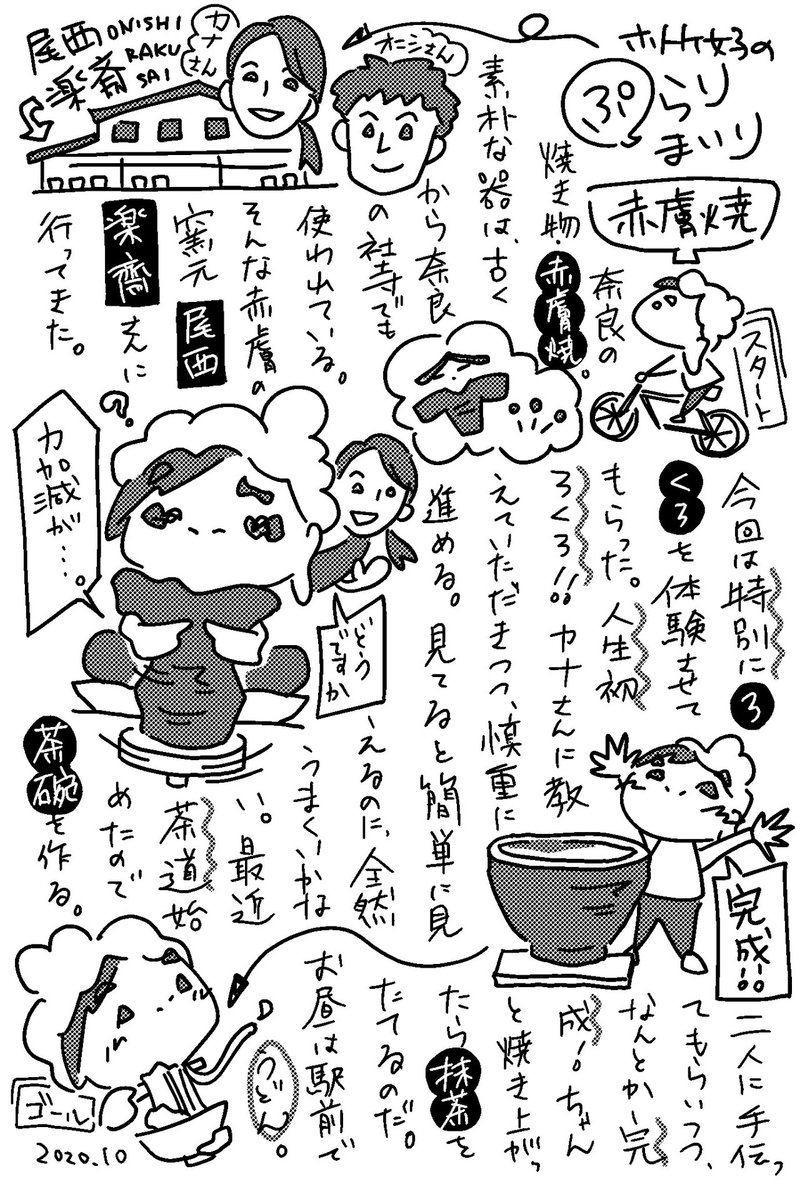 ホトケ女子の
ぷらり
まいり
赤膚焼
スタート
オニシさん
カナさん
尾西
ONISHI
楽斎
RAKU
SAI
奈良の
焼き物・赤膚焼。
素朴な器は、古く
から奈良
の社寺でも
使われている。
そんな赤膚の
窯元 尾西
楽齋さんに
行ってきた。
今回は特別にろ
くろを体験させて
もらった。人生初
ろくろ!!カナさんに教
えていただきつつ、慎重に
進める。見てると簡単に見
えるのに、全然
うまくいかな
い。最近
茶道始
めたので
茶碗を作る。
?
力加減が…。
どう
ですか
完成!!
二人に手伝っ
てもらいつつ、
なんとかー完
成!ちゃん
と焼き上がっ
たら抹茶を
たてるのだ。
お昼は駅前で
うどん。
ゴール
2020.10